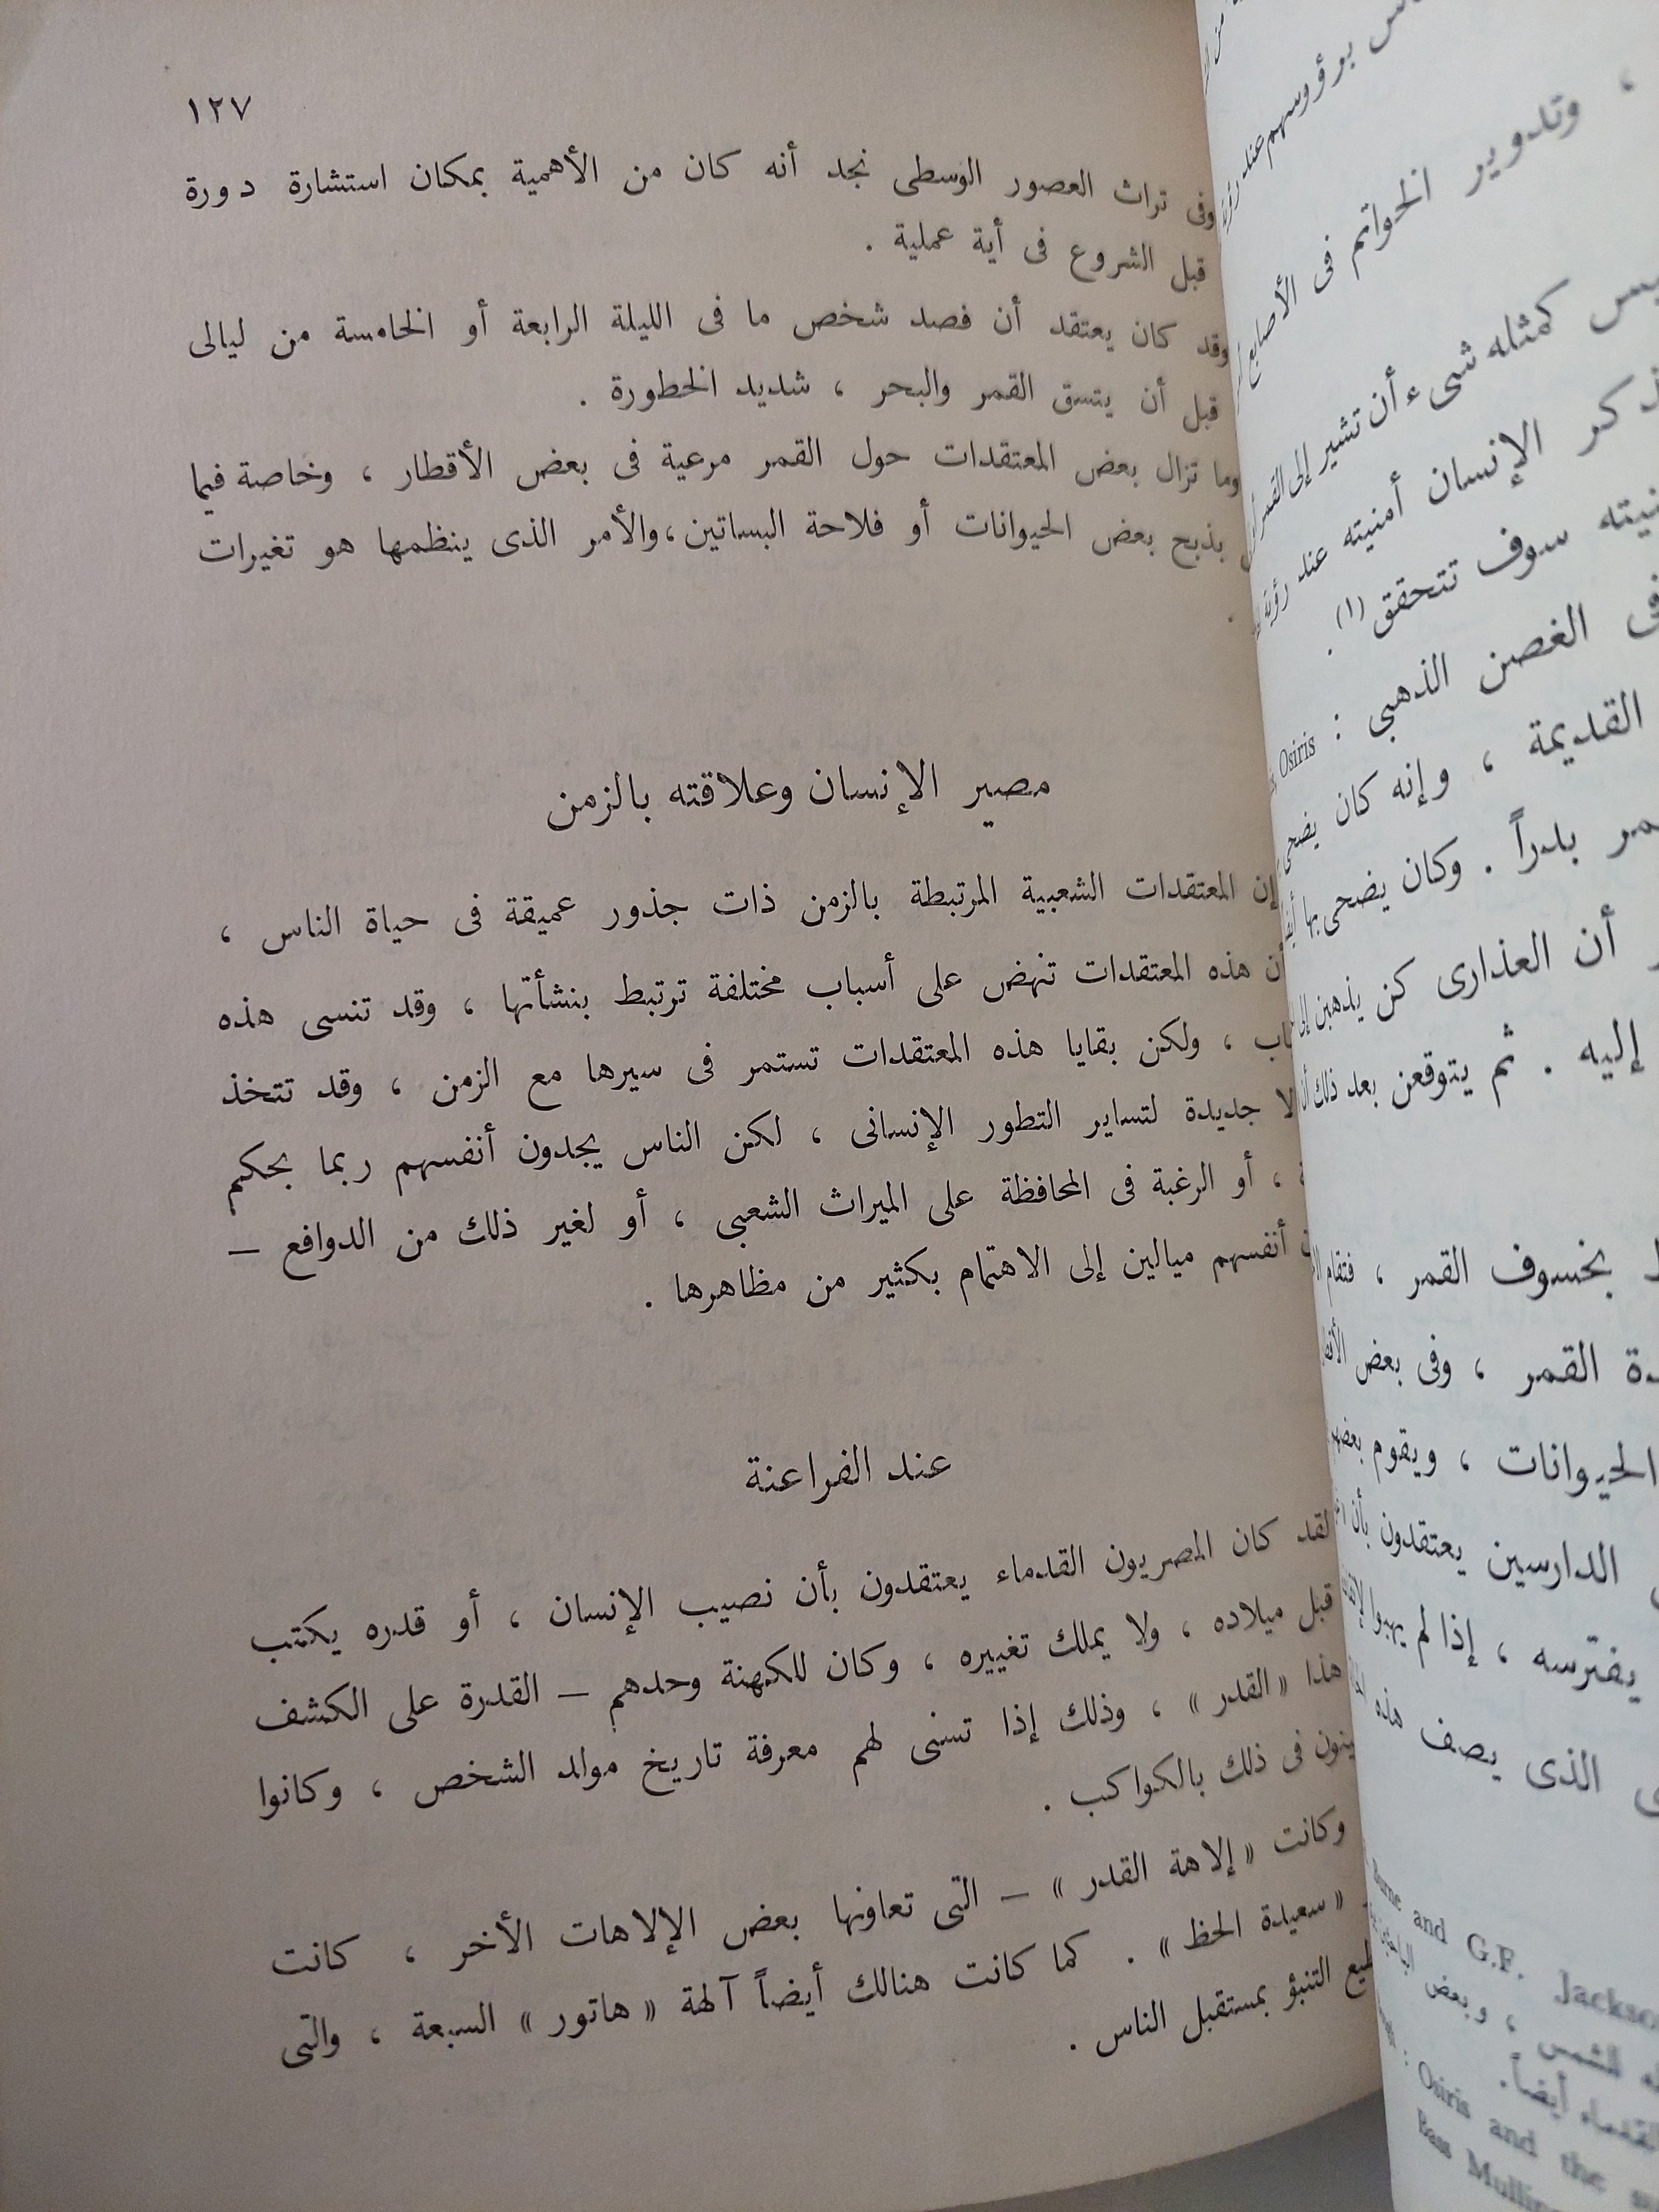 ١٢٧
وفى تراث العصور الوسطى نجد أنه كان من الأهمية بمكان استشارة دورة
قبل الشروع فى أية عملية .
وقد كان يعتقد أن فصد شخص ما فى الليلة الرابعة أو الخامسة من ليالى
قبل أن يتسق القمر والبحر ، شديد الخطورة .
وما تزال بعض المعتقدات حول القمر مرعية فى بعض الأقطار ، وخاصة فيما
بذبح بعض الحيوانات أو فلاحة البساتين ، والأمر الذى ينظمها هو تغيرات
مصير الإنسان وعلاقته بالزمن
إن المعتقدات الشعبية المرتبطة بالزمن ذات جذور عميقة فى حياة الناس ،
أن هذه المعتقدات تنهض على أسباب مختلفة ترتبط بنشأتها ، وقد تنسى هذه
، ولكن بقايا هذه المعتقدات تستمر فى سيرها مع الزمن ، وقد تتخذ
جديدة لتساير التطور الإنسانى ، لكن الناس يجدون أنفسهم ربما بحكم
، أو الرغبة فى المحافظة على الميراث الشعبى ، أو لغير ذلك من الدوافع —
أنفسهم ميالين إلى الاهتمام بكثير من مظاهرها .
عند الفراعنة
لقد كان المصريون القدماء يعتقدون بأن نصيب الإنسان ، أو قدره يكتب
قبل ميلاده ، ولا يملك تغييره ، وكان للكهنة وحدهم — القدرة على الكشف
هذا « القدر » ، وذلك إذا تسنى لهم معرفة تاريخ مولد الشخص ، وكانوا
فى ذلك بالكواكب .
وكانت « إلاهة القدر » — التى تعاونها بعض الإلاهات الأخر ، كانت
« سعيدة الحظ » . كما كانت هنالك أيضاً آلهة « هاتور » السبعة ، والتى
التنبؤ بمستقبل الناس .
برؤوسهم عند
، وتدوير الخواتم فى الأصابع
كمثله شىء أن تشير إلى القمر
الإنسان أمنيته عند رؤية
سوف تتحقق (١) .
الغصن الذهبى : Osiris
القديمة ، وإنه كان يضحى
بدراً . وكان يضحى بها
أن العذارى كن يذهبن إلى
إليه . ثم يتوقعن بعد ذلك أن
بخسوف القمر ، فتقام
القمر ، وفى بعض
الحيوانات ، ويقوم
الدارسين يعتقدون بأن
يفترسه ، إذا لم يهبوا
الذى يصف هذه
and G.F. Jackson
، وبعض
أيضاً.
: Osiris and the
Bass